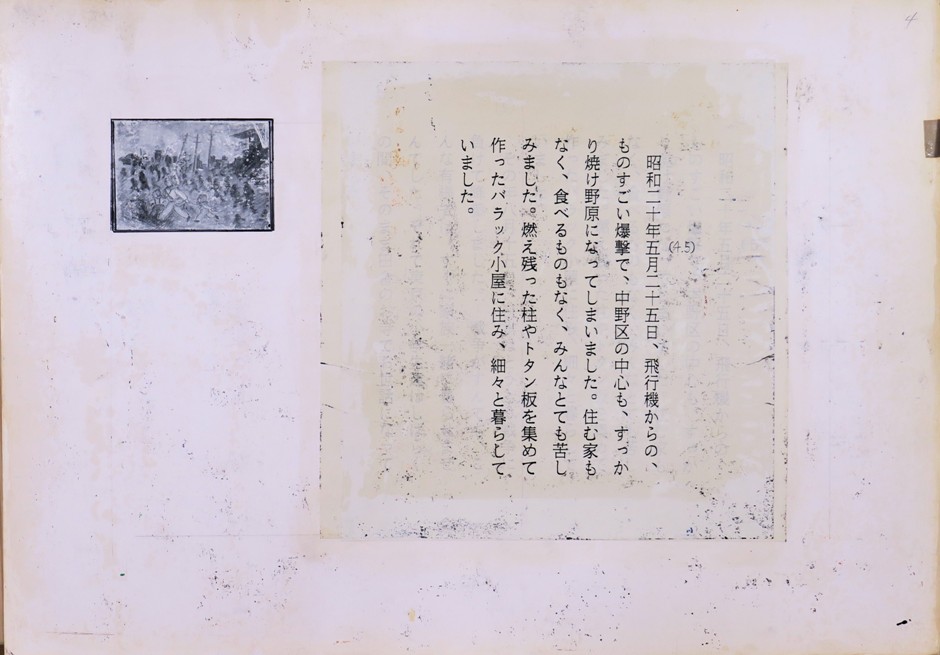 4
(4.5)
昭和二十年五月二十五日、飛行機からの、
ものすごい爆撃で、中野区の中心も、すっか
り焼け野原になってしまいました。住む家も
なく、食べるものもなく、みんなとても苦し
みました。燃え残った柱やトタン板を集めて
作ったバラック小屋に住み、細々と暮らして
いました。